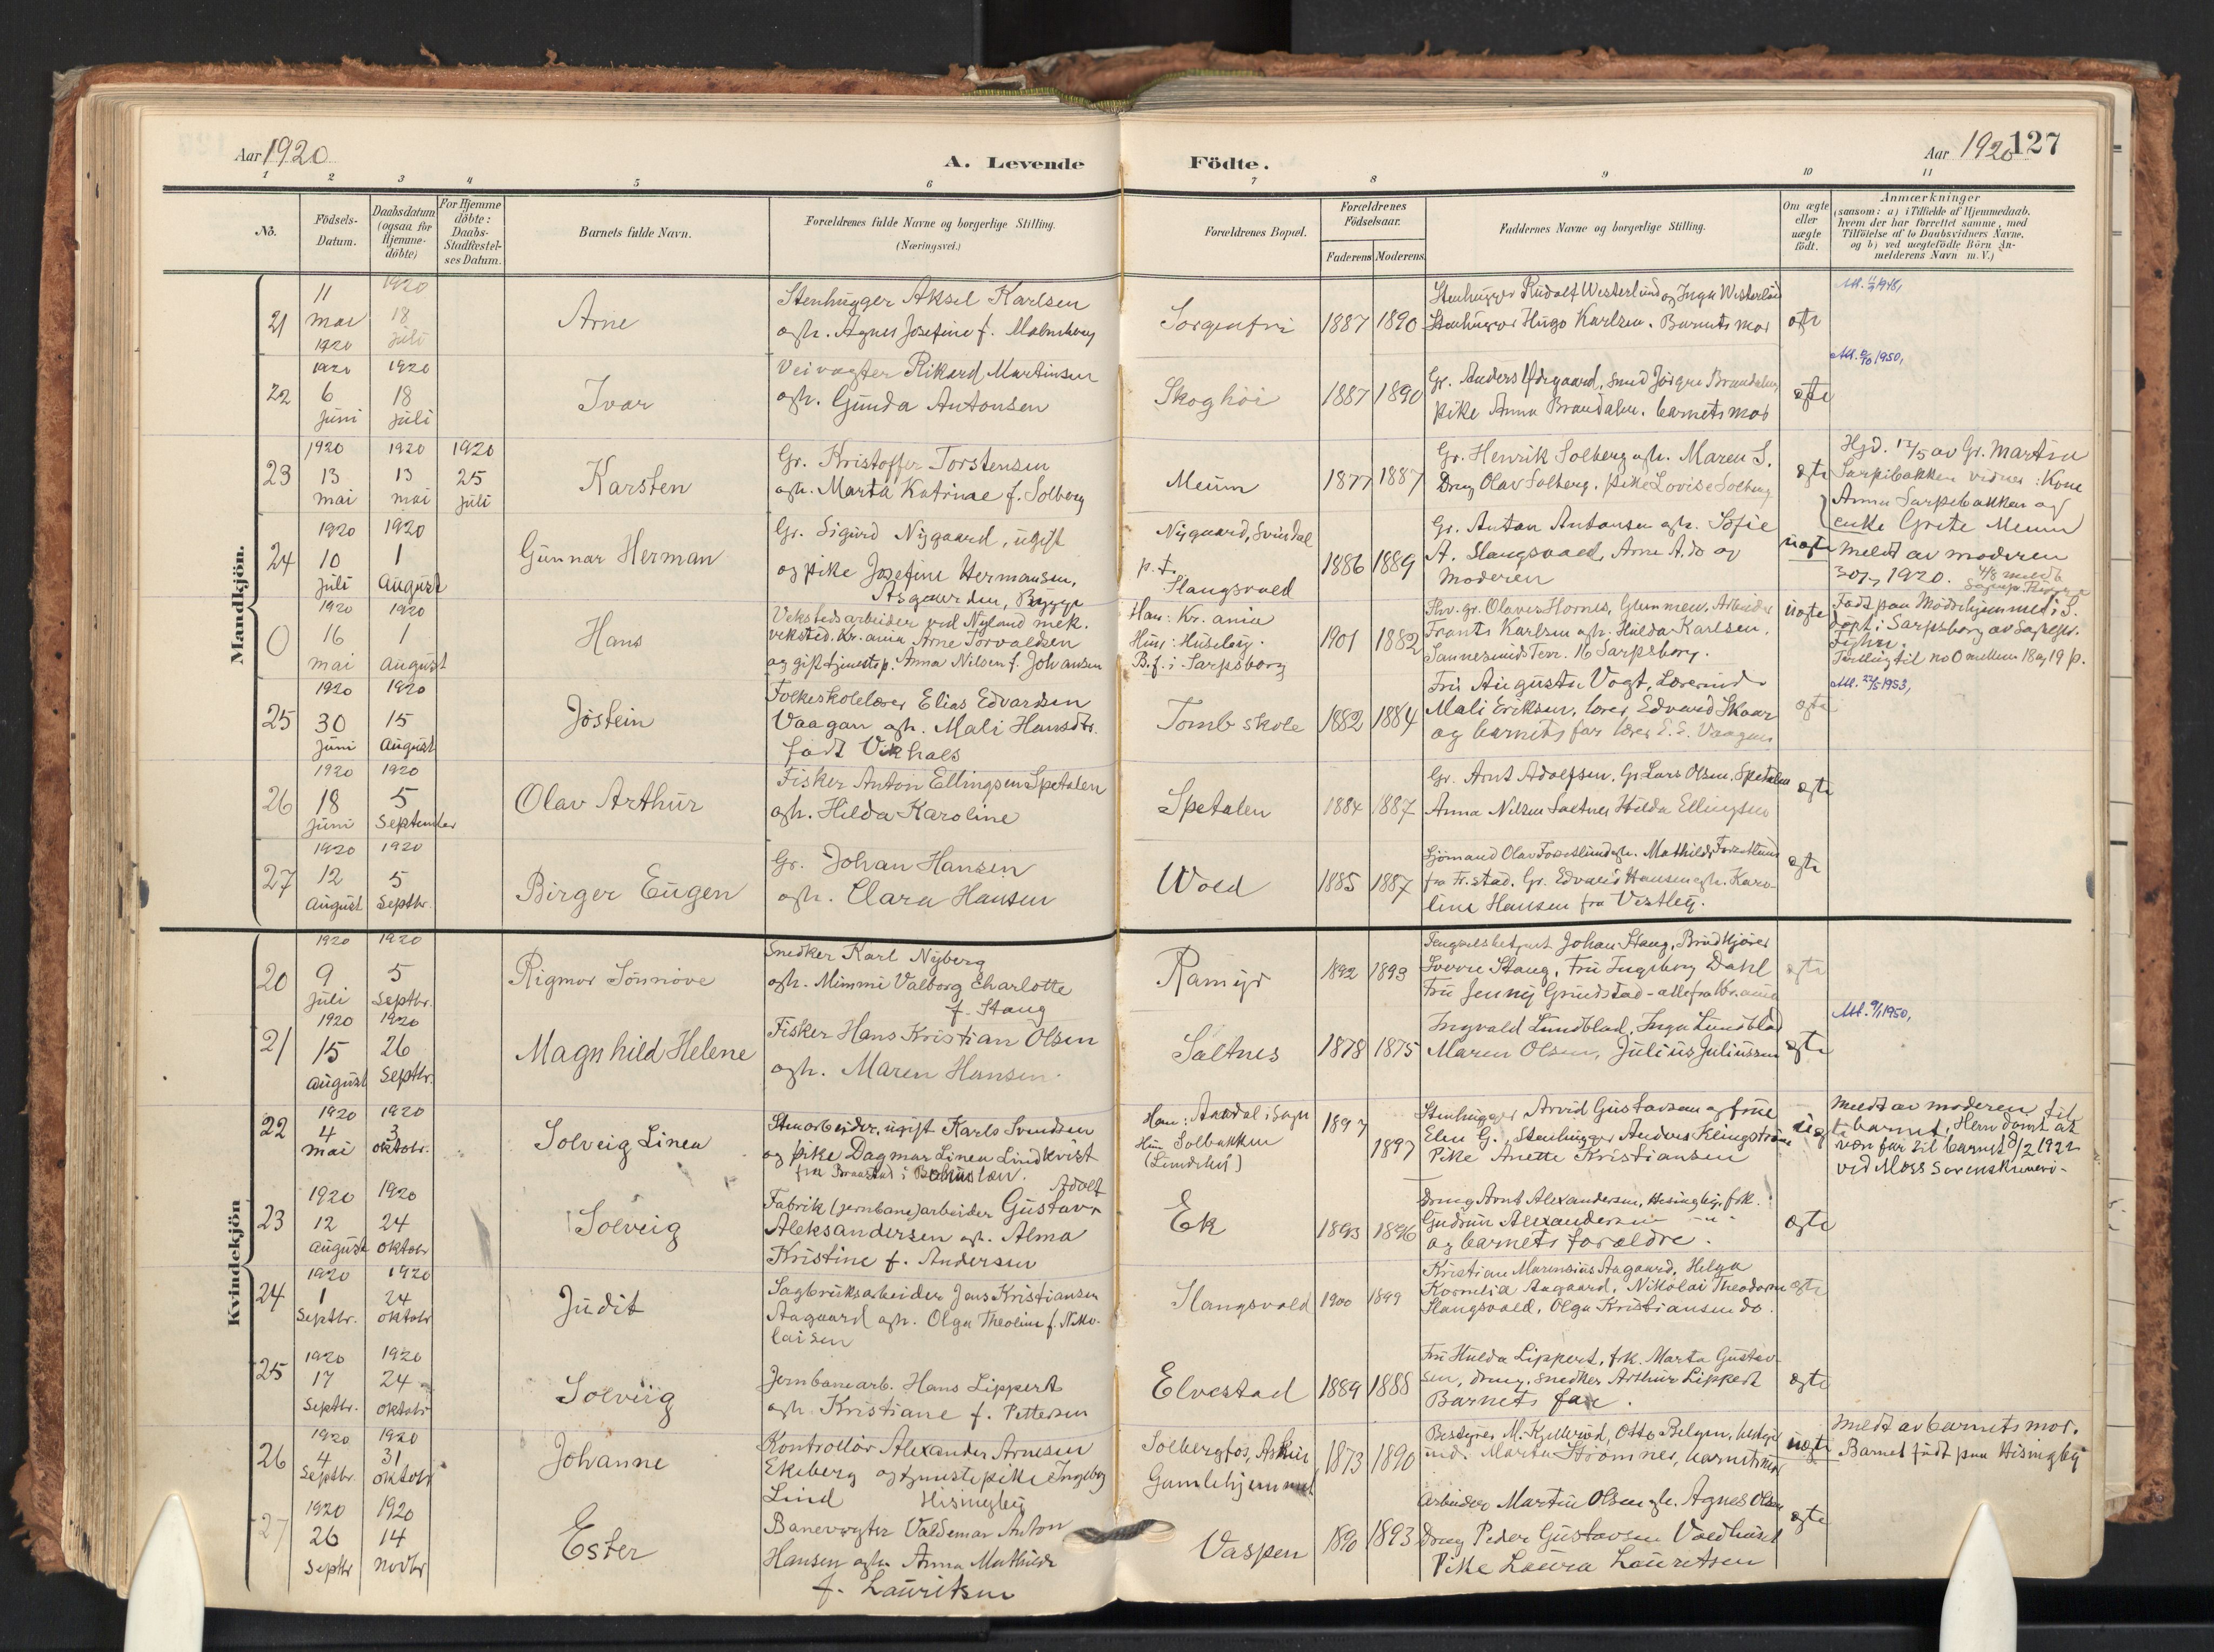 Aar 1920
A. Levende
Födte.
Aar 1920
127
1 2 3 4 5 6 7 8 9 10 11
No.
Födsels-
Datum.
Daabsdatum
(ogsaa for
Hjemme-
döbte)
For Hjemme
döbte:
Daabs-
Stadfæstel-
ses Datum.
Barnets fulde Navn.
Forældrenes fulde Navne og borgerlige Stilling.
(Næringsvei.)
Forældrenes Bopæl.
Forældrenes
Födselsaar.
Faderens
Moderens
Faddernes Navne og borgerlige Stilling.
Om ægte
eller
uægte
födt.
Anmærkninger
(saasom: a) i Tilfælde af Hjemmedaab,
hvem der har forrettet samme, med
Tilföielse af to Daabsvidners Navne,
og b) ved uægtefödte Börn An-
melderens Navn m. V.)
Mandkjön.
21
11
mai
1920
1920
18
juli
Arne
Stenhugger Aksel Karlsen
ogh. Agnes Josefine f. Malmberg
Sorgenfri
1887
1890
Stenhugger Rudolf Westerlund og Inga Westerlund
Stenhugger Hugo Karlsen. Barnets mor
egte
22
1920
6
juni
1920
18
juli
Ivar
Veivogter Rikard Martinsen
ogh. Gunda Antonsen
Skoghöi
1887
1890
pike Anna Brandalen. barnets mor
egte
1950,
23
1920
13
mai
1920
13
mai
1920
25
juli
Karsten
Gr. Kristoffer Torstensen
ogh. Marta Katrine f. Solberg
Meum
1877
1887
Gr. Henrik Solberg ogh. Maren S.
Dreng Olav Solberg. pike Lovise Solberg
egte
Hjd. 13/5 av Gr. Martin
Sarpebakken vidner: Kone
Anna Sarpebakken og
enke Grete Meum
24
1920
10
juli
1920
1
August
Gunnar Herman
Gr. Sigurd Nygaard, ugift
og pike Josefine Hermansen,
Asgaarden, Rygge
Nygaard, Svindal
p.t.
Slangsvold
1886
1889
Gr. Anton Antonsen ogh. Sofie
A. Slangsvold, Arne A. do og
Moderen
uegte
Meldt av moderen
30/7 1920.
0
1920
16
mai
1920
1
August
Hans
Verkstedsarbeider ved Nyland mek.
verksted. Kr.ania Arne Torvaldsen
og gift tjenestep. Anna Nilsen f. Johansen
Han: Kr.ania
Hun: Huseby.
B.f. i Sarpsborg
1901
1882
Frants Karlsen ogh. Hulda Karlsen.
Sannesunds Terr. 16 Sarpsborg.
uegte
Födt paa Mödrehjemmet i S.
döpt i Sarpsborg av
25
1920
30
juni
1920
15
August
Jöstein
Folkeskolelærer Elias Edvardsen
Vaagan ogh. Mali Hansdtr.
född Vikhals
Tomb skole
1882
1884
Fru Augusta Vogt, Lærerinde
Mali Eriksen, lærer Edvard Skaar
og barnets far lærer E. E. Vaagan
egte
1953,
26
1920
18
juni
1920
5
September
Olav Arthur
Fisker Anton Ellingsen Spetalen
ogh. Hilda Karoline
Spetalen
1884
1887
Gr. Arnt Adolfsen, Gr Lars Olsen, Spetalen
Anna Nilsen Saltnes Hilda Ellingsen
egte
27
1920
12
August
1920
5
Septbr.
Birger Eugen
Gr. Johan Hansen
ogh. Clara Hansen
Wold
1885
1887
fra Fr.stad. Gr. Edvard Hansen ogh. Karo-
line Hansen fra Vestby.
egte
Kvindekjön
20
1920
9
juli
1920
5
Septbr.
Rigmor Sönnöve
Snedker Karl Nyberg
ogh. Mimmi Valborg Charlotte
f. Stang
Ramyr
1892
1893
Fengselsbetjent Johan Stang, Brudkjörer
Sverre Stang, Fru Ingeborg Dahl
Fru Jenny Grundstad - alle fra Kr.ania
egte
21
1920
15
August
1920
26
Septbr.
Magnhild Helene
Fisker Hans Kristian Olsen
ogh. Maren Hansen
Saltnes
1878
1875
Ingvald Lundblad, Inga Lundblad
Maren Olsen, Julius Juliussen
egte
1950,
22
1920
4
mai
1920
3
oktobr.
Solveig Linea
Stenarbeider, ugift Karls Svendsen
og pike Dagmar Linea Lindkvist
Hun Solbakken
1897
1897
Stenhugger Arvid Gustavsen og frue
Elen G. Stenhugger Anders Klingström
Pike Anette Kristiansen
uegte
Meldt av moderen til
barnet. Han dömt at
være far til barnet 1922
ved Moss Sorenskriveri-
23
1920
12
August
1920
24
oktobr
Solveig
Adolf
Fabrik (jernbane)arbeider Gustav
Aleksandersen ogh. Alma
Kristine f. Andersen
Ek
1893
1896
Dreng Arnt Alexandersen, Hisingby, frk.
Gudrun Alexandersen -"-
og barnets forældre.
egte
24
1920
1
Septbr.
1920
24
oktobr
Judit
Sagbruksarbeider Jens Kristiansen
Aagaard ogh. Olga Theoline f. Niko-
laisen
Slangsvold
1900
1899
Kristian Marensius Aagaard, Helga
Kornelia Aagaard, Nikolai Theodorsen
Slangsvold, Olga Kristiansen do.
egte
25
1920
17
Septbr.
1920
24
oktobr
Solveig
Jernbanearb. Hans Lippert
ogh. Kristiane f. Pettersen
Elvestad
1889
1888
Fru Hulda Lippert, frk. Marta Gustav-
sen, dreng. snedker Arthur Lippert
Barnets far.
egte
26
1920
4
Septbr.
1920
31
oktobr
Johanne
Kontrollör Alexander Arnesen
Ekeberg og tjenestepike Ingeborg
Lind Hisingby
Solbergfos, Askim
Gamlehjemmet
1873
1890
uegte
Meldt av barnets mor.
Barnet født paa Hisingby
27
1920
26
Septbr
1920
14
Novbr
Ester
Banevogter Valdemar Anton
Hansen ogh. Anna Mathilde
f. Lauritsen
Vaspen
1890
1893
Arbeider Martin Olsen ogh. Agnes Olsen
Dreng Peder Gustavsen Voldhuset
Pike Laura Lauritsen
egte